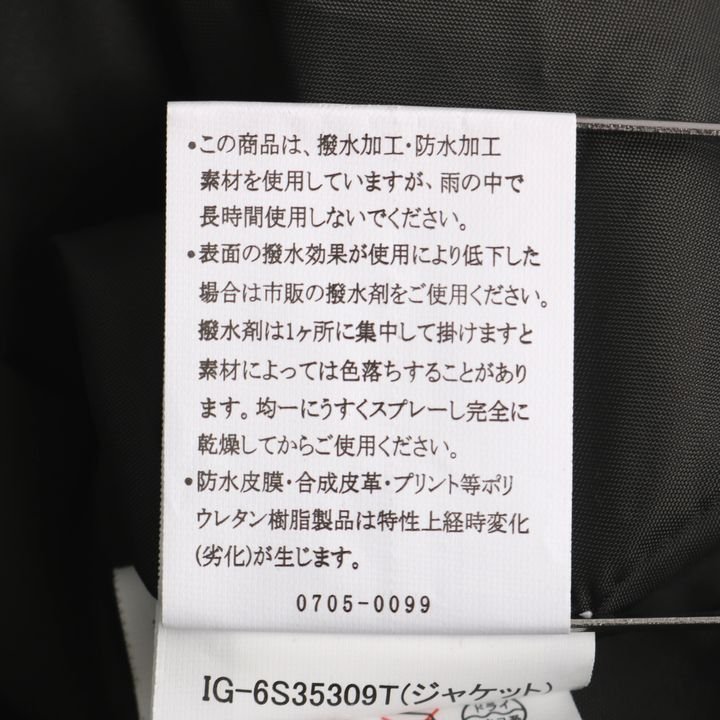 •この商品は、撥水加工・防水加工
素材を使用していますが、雨の中で
長時間使用しないでください。
•表面の撥水効果が使用により低下した
場合は市販の撥水剤をご使用ください。
撥水剤は1ヶ所に集中して掛けますと
素材によっては色落ちすることがあり
ます。均一にうすくスプレーし完全に
乾燥してからご使用ください。
•防水皮膜・合成皮革・プリント等ポリ
ウレタン樹脂製品は特性上経時変化
(劣化)が生じます。
0705-0099
IG-6S35309T(ジャケット)
ドライ